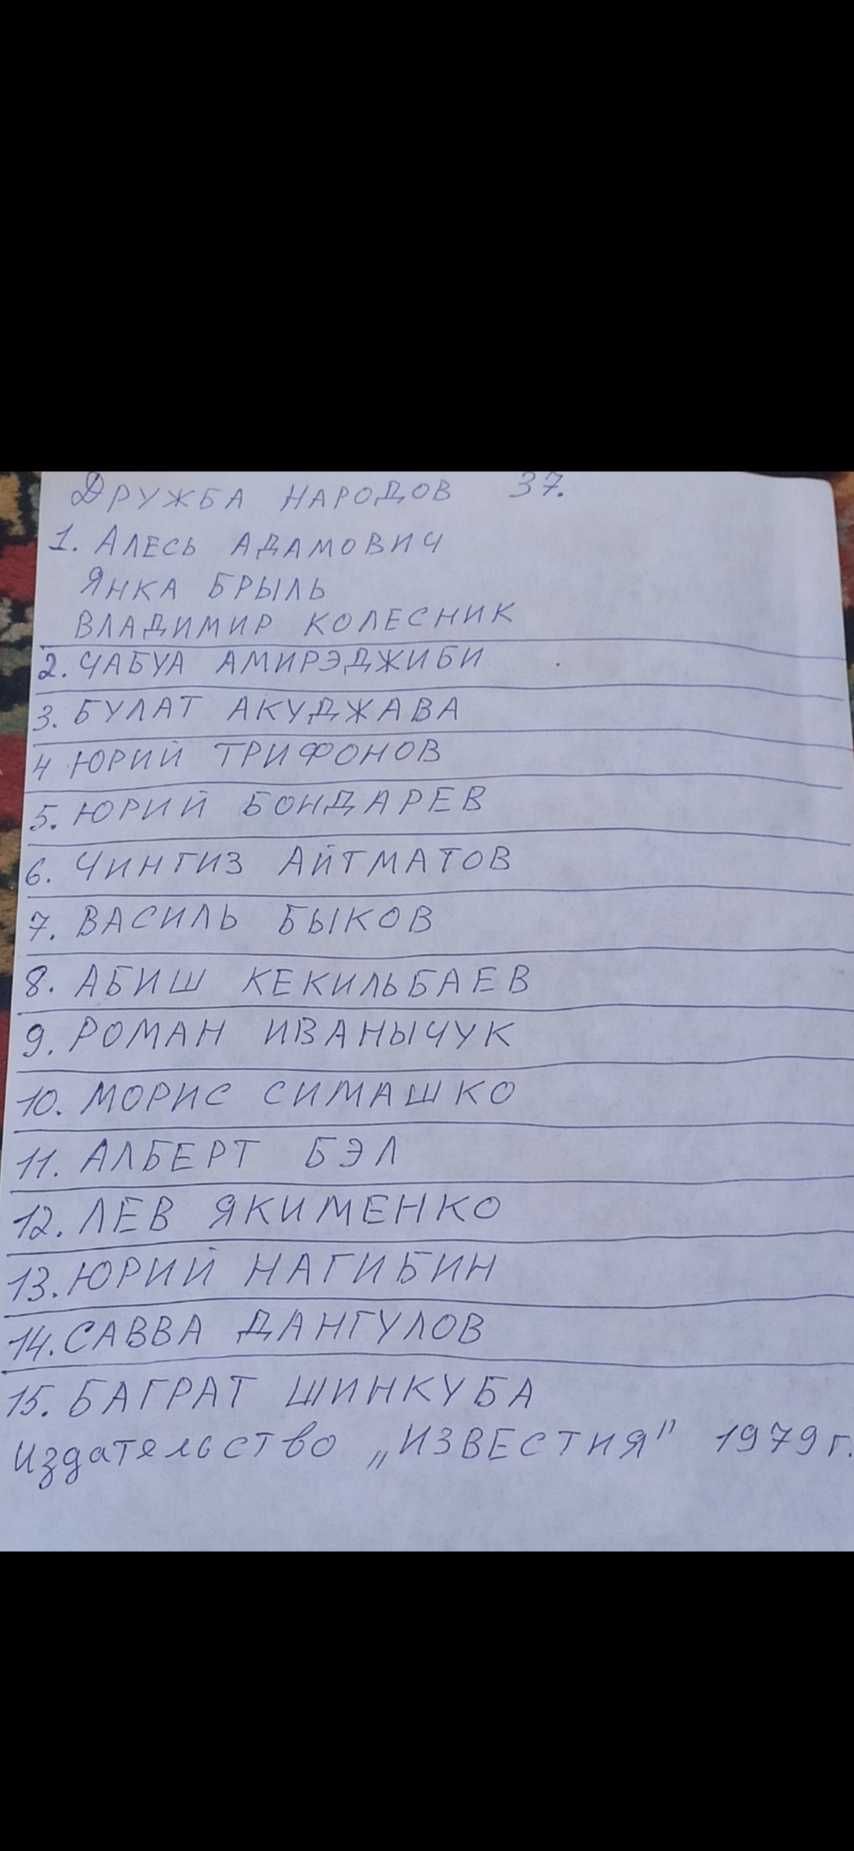 ДРУЖБА НАРОДОВ 37.
1. АЛЕСЬ АДАМОВИЧ
ЯНКА БРЫЛЬ
ВЛАДИМИР КОЛЕСНИК
2. ЧАБУА АМИРЭДЖИБИ
3. БУЛАТ АКУДЖАВА
4 ЮРИЙ ТРИФОНОВ
5. ЮРИЙ БОНДАРЕВ
6. ЧИНГИЗ АЙТМАТОВ
7. ВАСИЛЬ БЫКОВ
8. АБИШ КЕКИЛЬБАЕВ
9. РОМАН ИВАНЫЧУК
10. МОРИС СИМАШКО
11. АЛБЕРТ БЭЛ
12. ЛЕВ ЯКИМЕНКО
13. ЮРИЙ НАГИБИН
14. САВВА ДАНГУЛОВ
15. БАГРАТ ШИНКУБА
Издательство „ИЗВЕСТИЯ" 1979 г.